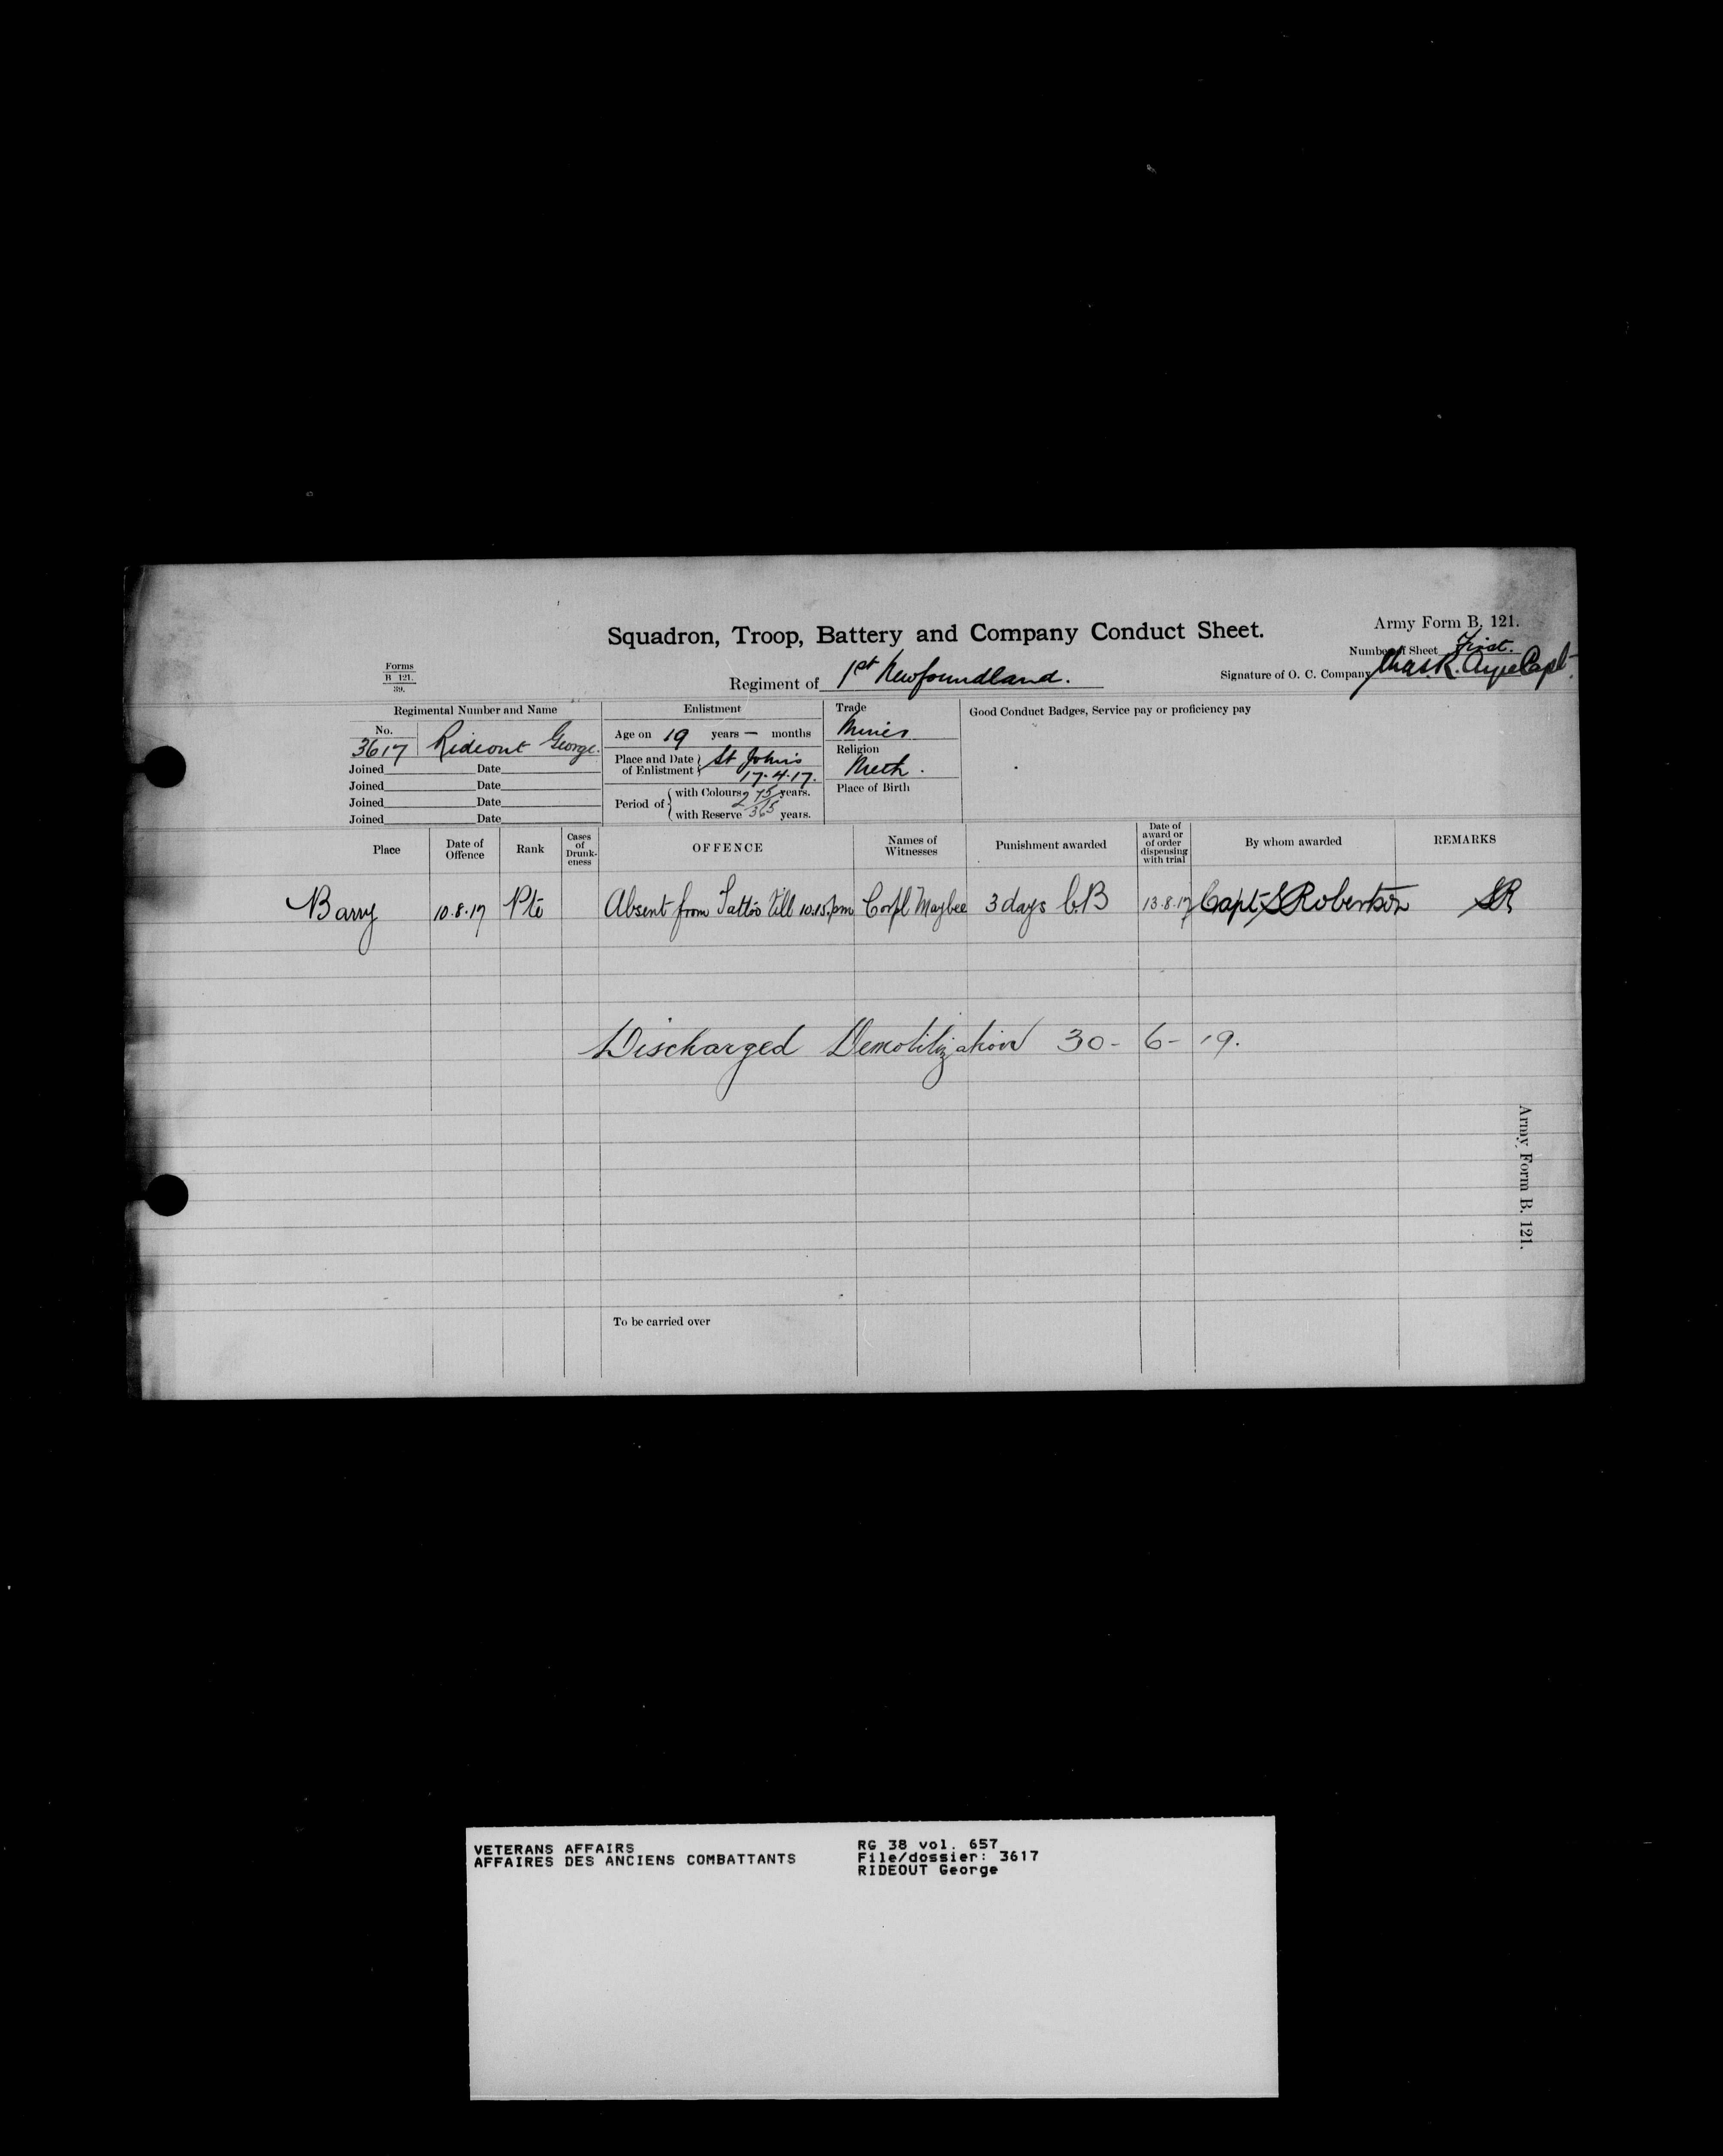 Army Form B. 121.
Squadron, Troop, Battery and Company Conduct Sheet.
Number of Sheet First.
Forms
B 121.
39.
Regiment of 1st Newfoundland.
Signature of O. C. Company Chas. R. Ayre Capt.
Regimental Number and Name
Enlistment
Trade
Good Conduct Badges, Service pay or proficiency pay
No.
3617 Rideout George.
Age on 19 years — months
Miner
Religion
Meth.
Place and Date of Enlistment St Johns
17.4.17.
Joined Date
Joined Date
Joined Date
Joined Date
Period of
with Colours years.
with Reserve 365 years.
Place of Birth
Place
Date of Offence
Rank
Cases of Drunk-eness
OFFENCE
Names of Witnesses
Punishment awarded
Date of award or of order dispensing with trial
By whom awarded
REMARKS
Barry 10.8.17 Pte Absent from Tattoo till 10.15.pm Corpl Maybee 3 days C.B 13.8.17 Capt S Robertson SR
Discharged Demobilization 30-6-19.
Army Form B. 121.
To be carried over
VETERANS AFFAIRS
AFFAIRES DES ANCIENS COMBATTANTS
RG 38 vol. 657
File/dossier: 3617
RIDEOUT George